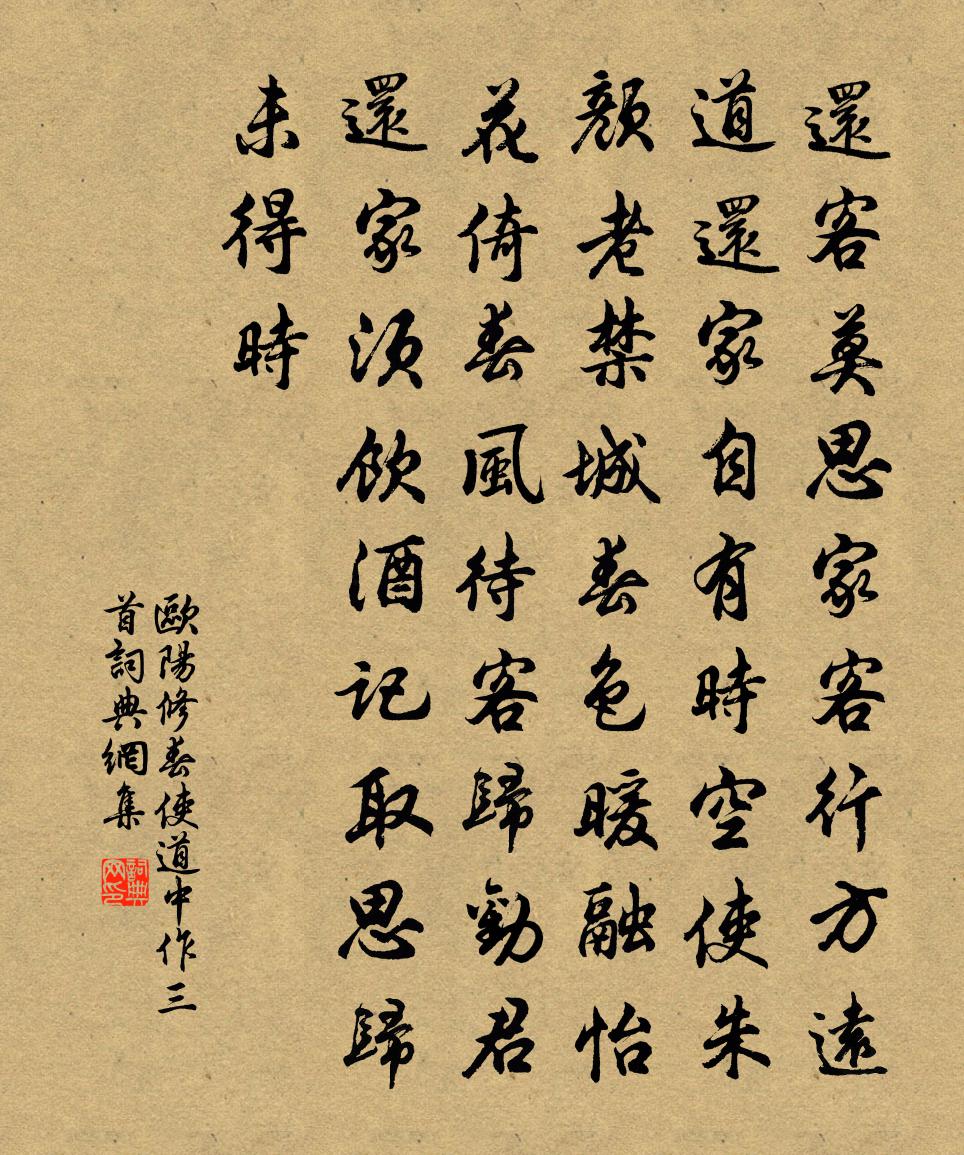 還客莫思家客行方遠
道還家自有時空使朱
顏老禁城春色暖融怡
花倚春風待客歸勸君
還家須飲酒記取思歸
未得時
歐陽修春使道中作三
首詞典網集
詞典網印